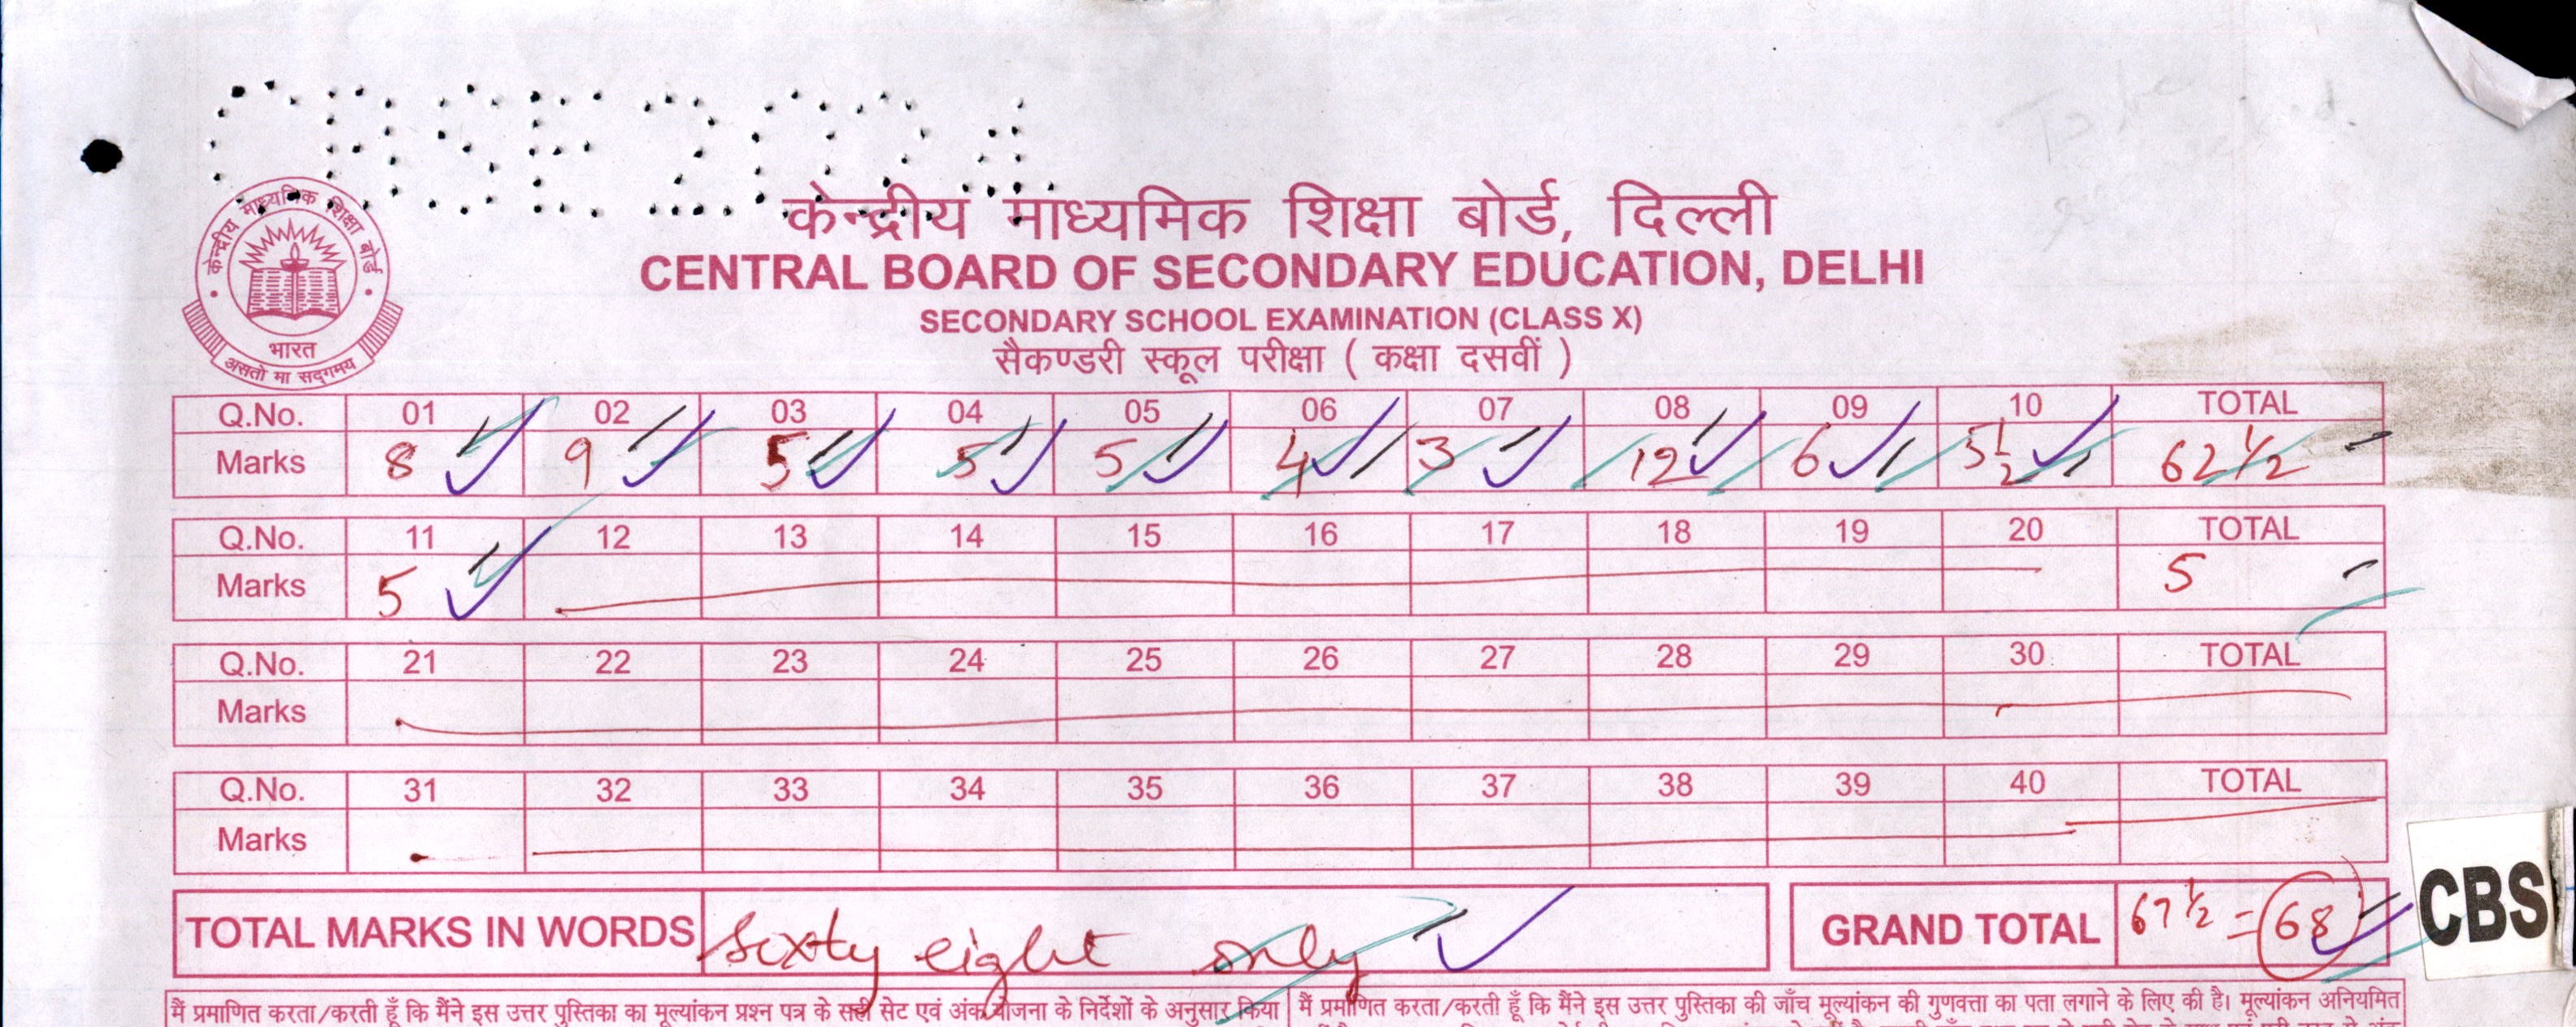 CBSE 2024
केन्द्रीय माध्यमिक शिक्षा बोर्ड, दिल्ली
केन्द्रीय माध्यमिक शिक्षा बोर्ड
भारत
असतो मा सद्गमय
CENTRAL BOARD OF SECONDARY EDUCATION, DELHI
SECONDARY SCHOOL EXAMINATION (CLASS X)
सैकण्डरी स्कूल परीक्षा ( कक्षा दसवीं )
Q.No. 01 02 03 04 05 06 07 08 09 10 TOTAL
Marks 8 9 5 5 5 4 3 12 6 5½ 62 ½
Q.No. 11 12 13 14 15 16 17 18 19 20 TOTAL
Marks 5 5
Q.No. 21 22 23 24 25 26 27 28 29 30 TOTAL
Marks
Q.No. 31 32 33 34 35 36 37 38 39 40 TOTAL
Marks
TOTAL MARKS IN WORDS Sixty eight only GRAND TOTAL 67 ½ = 68
CBS
मैं प्रमाणित करता/करती हूँ कि मैंने इस उत्तर पुस्तिका का मूल्यांकन प्रश्न पत्र के सही सेट एवं अंक योजना के निर्देशों के अनुसार किया
मैं प्रमाणित करता/करती हूँ कि मैंने इस उत्तर पुस्तिका की जाँच मूल्यांकन की गुणवत्ता का पता लगाने के लिए की है। मूल्यांकन अनियमित